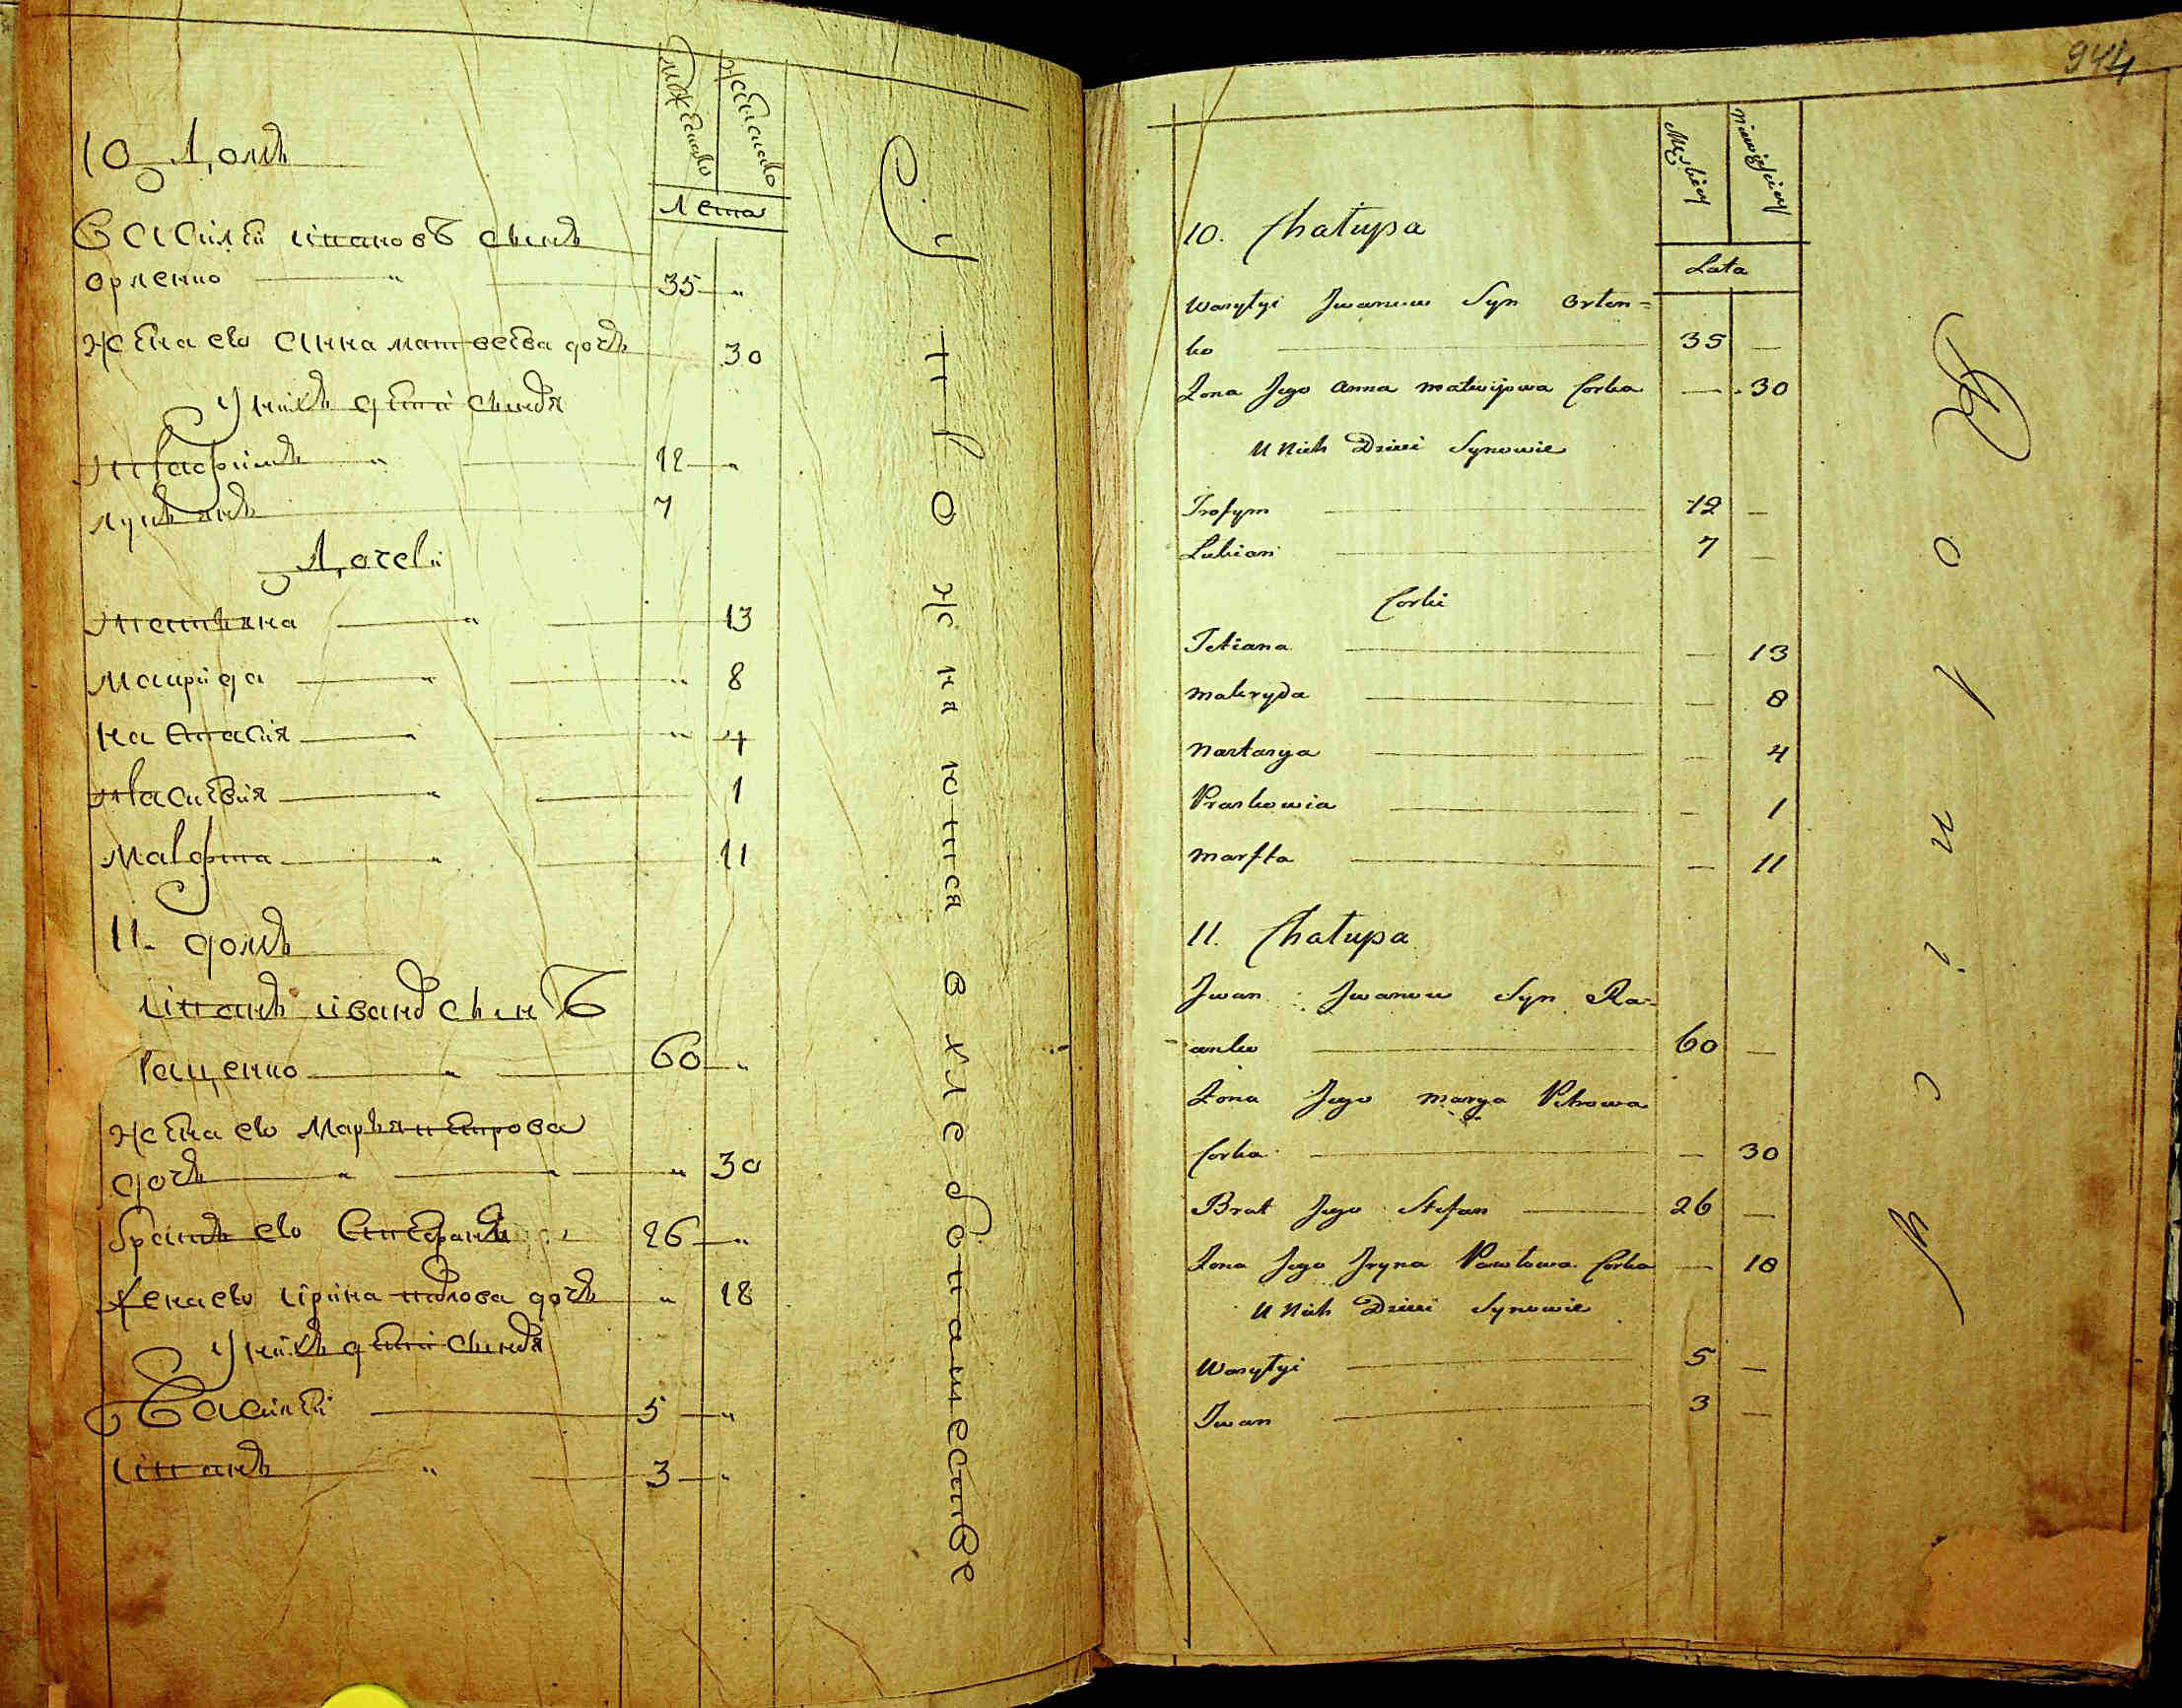 Мужеска
Женска
10 Домъ
Лета
Василей ивановъ сынъ
орленко 35 "
жена ево Анна матвеева дочь 30
У нихъ дети сыновя
трофимъ " 12 "
лукьянъ 7
Дочери
татьяна " 13
макрида " " 8
настасия " " 4
прасковия " 1
марфта " 11
11. домъ
иванъ ивановъ сынъ
ращенко " 60 "
жена ево Марья петрова
дочь " " " 30
братъ ево Стефанъ 26 "
жена ево ирина павлова дочь " 18
У нихъ дети сыновя
Василей 5 "
иванъ " 3 "
Упрожняются в хлебопашестве
944
Męskiey
Niewieściey
10. Chałupa
Lata
Wasylyi Jwanow Syn Orlen=
ko 35 —
Zona Jego Anna Matwijowa Corka — 30
U Nich Dzieci Synowie
Trofym 12 —
Lukian 7 —
Corki
Tetiana — 13
Makryda — 8
Nastasya — 4
Praskowia — 1
Marfta — 11
11. Chałupa
Jwan Jwanow Syn Ra=
anko 60 —
Zona Jego Marya Petrowa
Corka — 30
Brat Jego Stefan 26 —
Zona Jego Jryna Pawłowa Corka — 18
U Nich Dzieci Synowie
Wasylyi 5 —
Jwan 3 —
Rolnicy